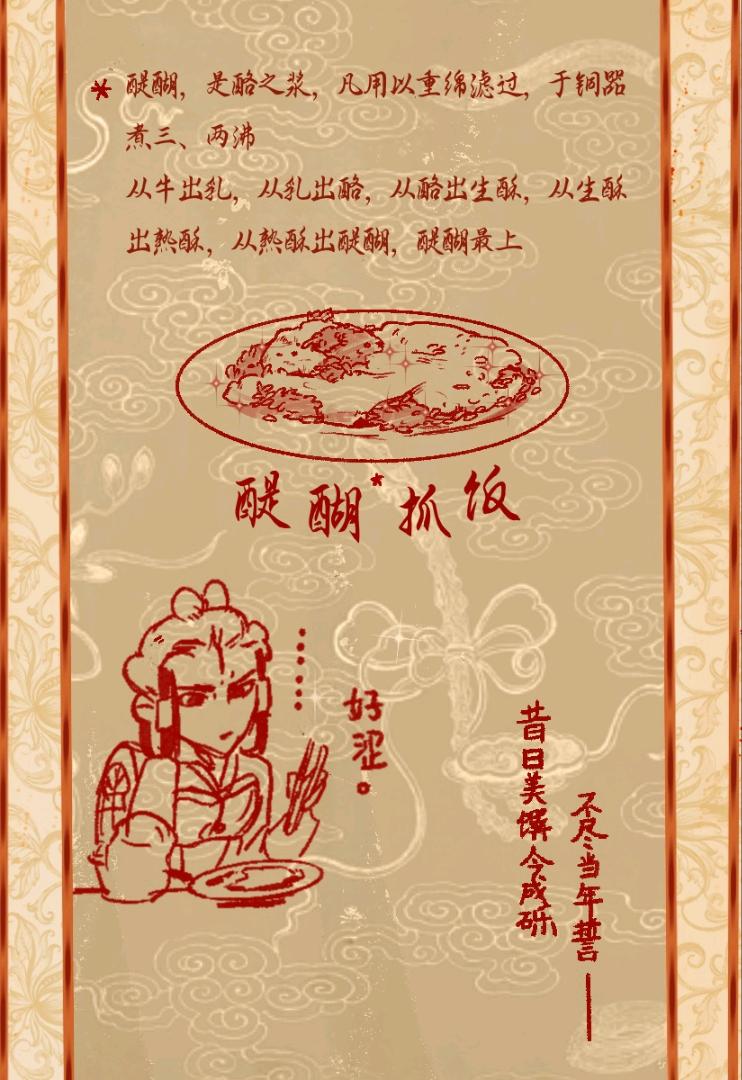 * 醍醐，是酪之浆，凡用以重绵滤过，于铜器
煮三、两沸
从牛出乳，从乳出酪，从酪出生酥，从生酥
出熟酥，从熟酥出醍醐，醍醐最上
醍醐*抓饭
……
好涩。
不尽当年誓——
昔日美馔今成砾